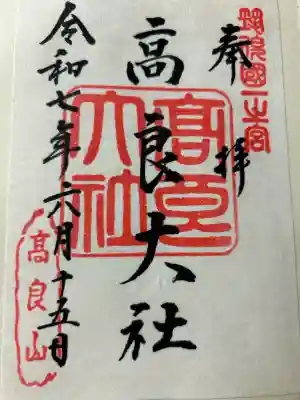 筑後國一之宮
奉拝
高良大社
髙良大社
令和七年六月十五日
高良山